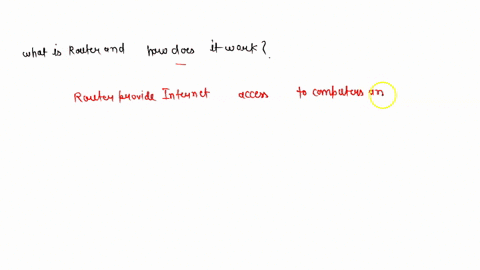 what is Router and how does it work?
Router provide Internet access to computers an